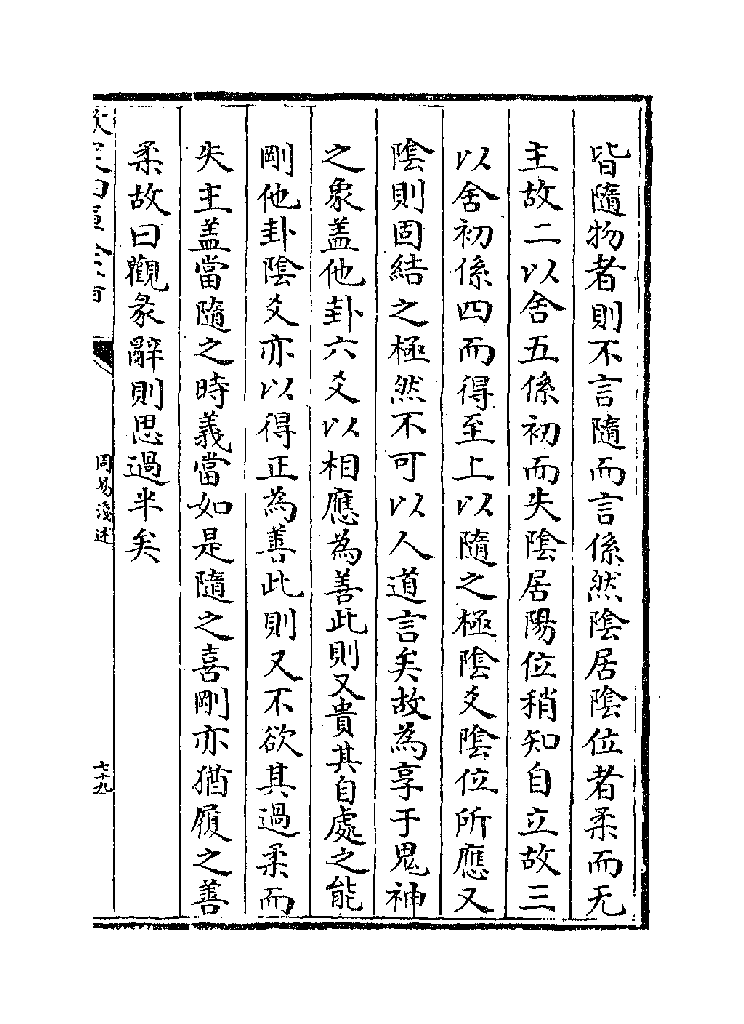 皆隨物者則不言隨而言係然陰居陰位者柔而无
主故二以舍五係初而失陰居陽位稍知自立故三
以舍初係四而得至上以隨之極陰爻陰位所應又
陰則固結之極然不可以人道言矣故為享于鬼神
之象盖他卦六爻以相應為善此則又貴其自處之能
剛他卦陰爻亦以得正為善此則又不欲其過柔而
失主盖當隨之時義當如是隨之喜剛亦猶履之善
柔故曰觀彖辭則思過半矣
周易淺述
七十九